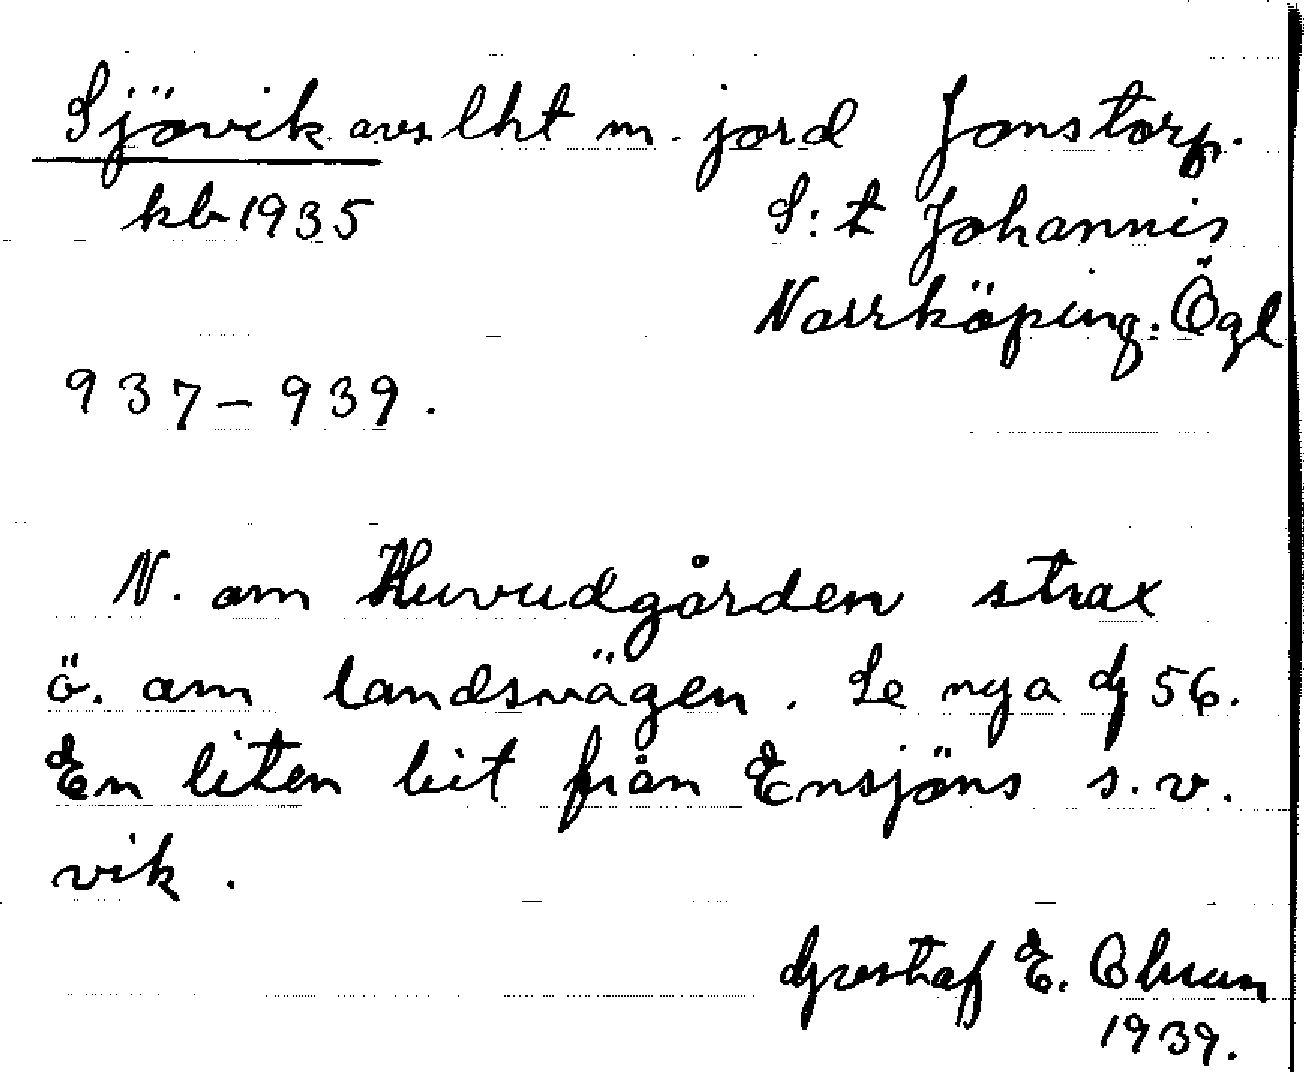 Sjövik avs. lht m. jord Jonstorp.
kb 1935 S:t Johannis
Norrköping. Ögl
937–939.
N. om Huvudgården strax
ö. om landsvägen. Se nya G 56.
En liten bit från Ensjöns s.v.
vik.
Gustaf E. Olsson
1939.